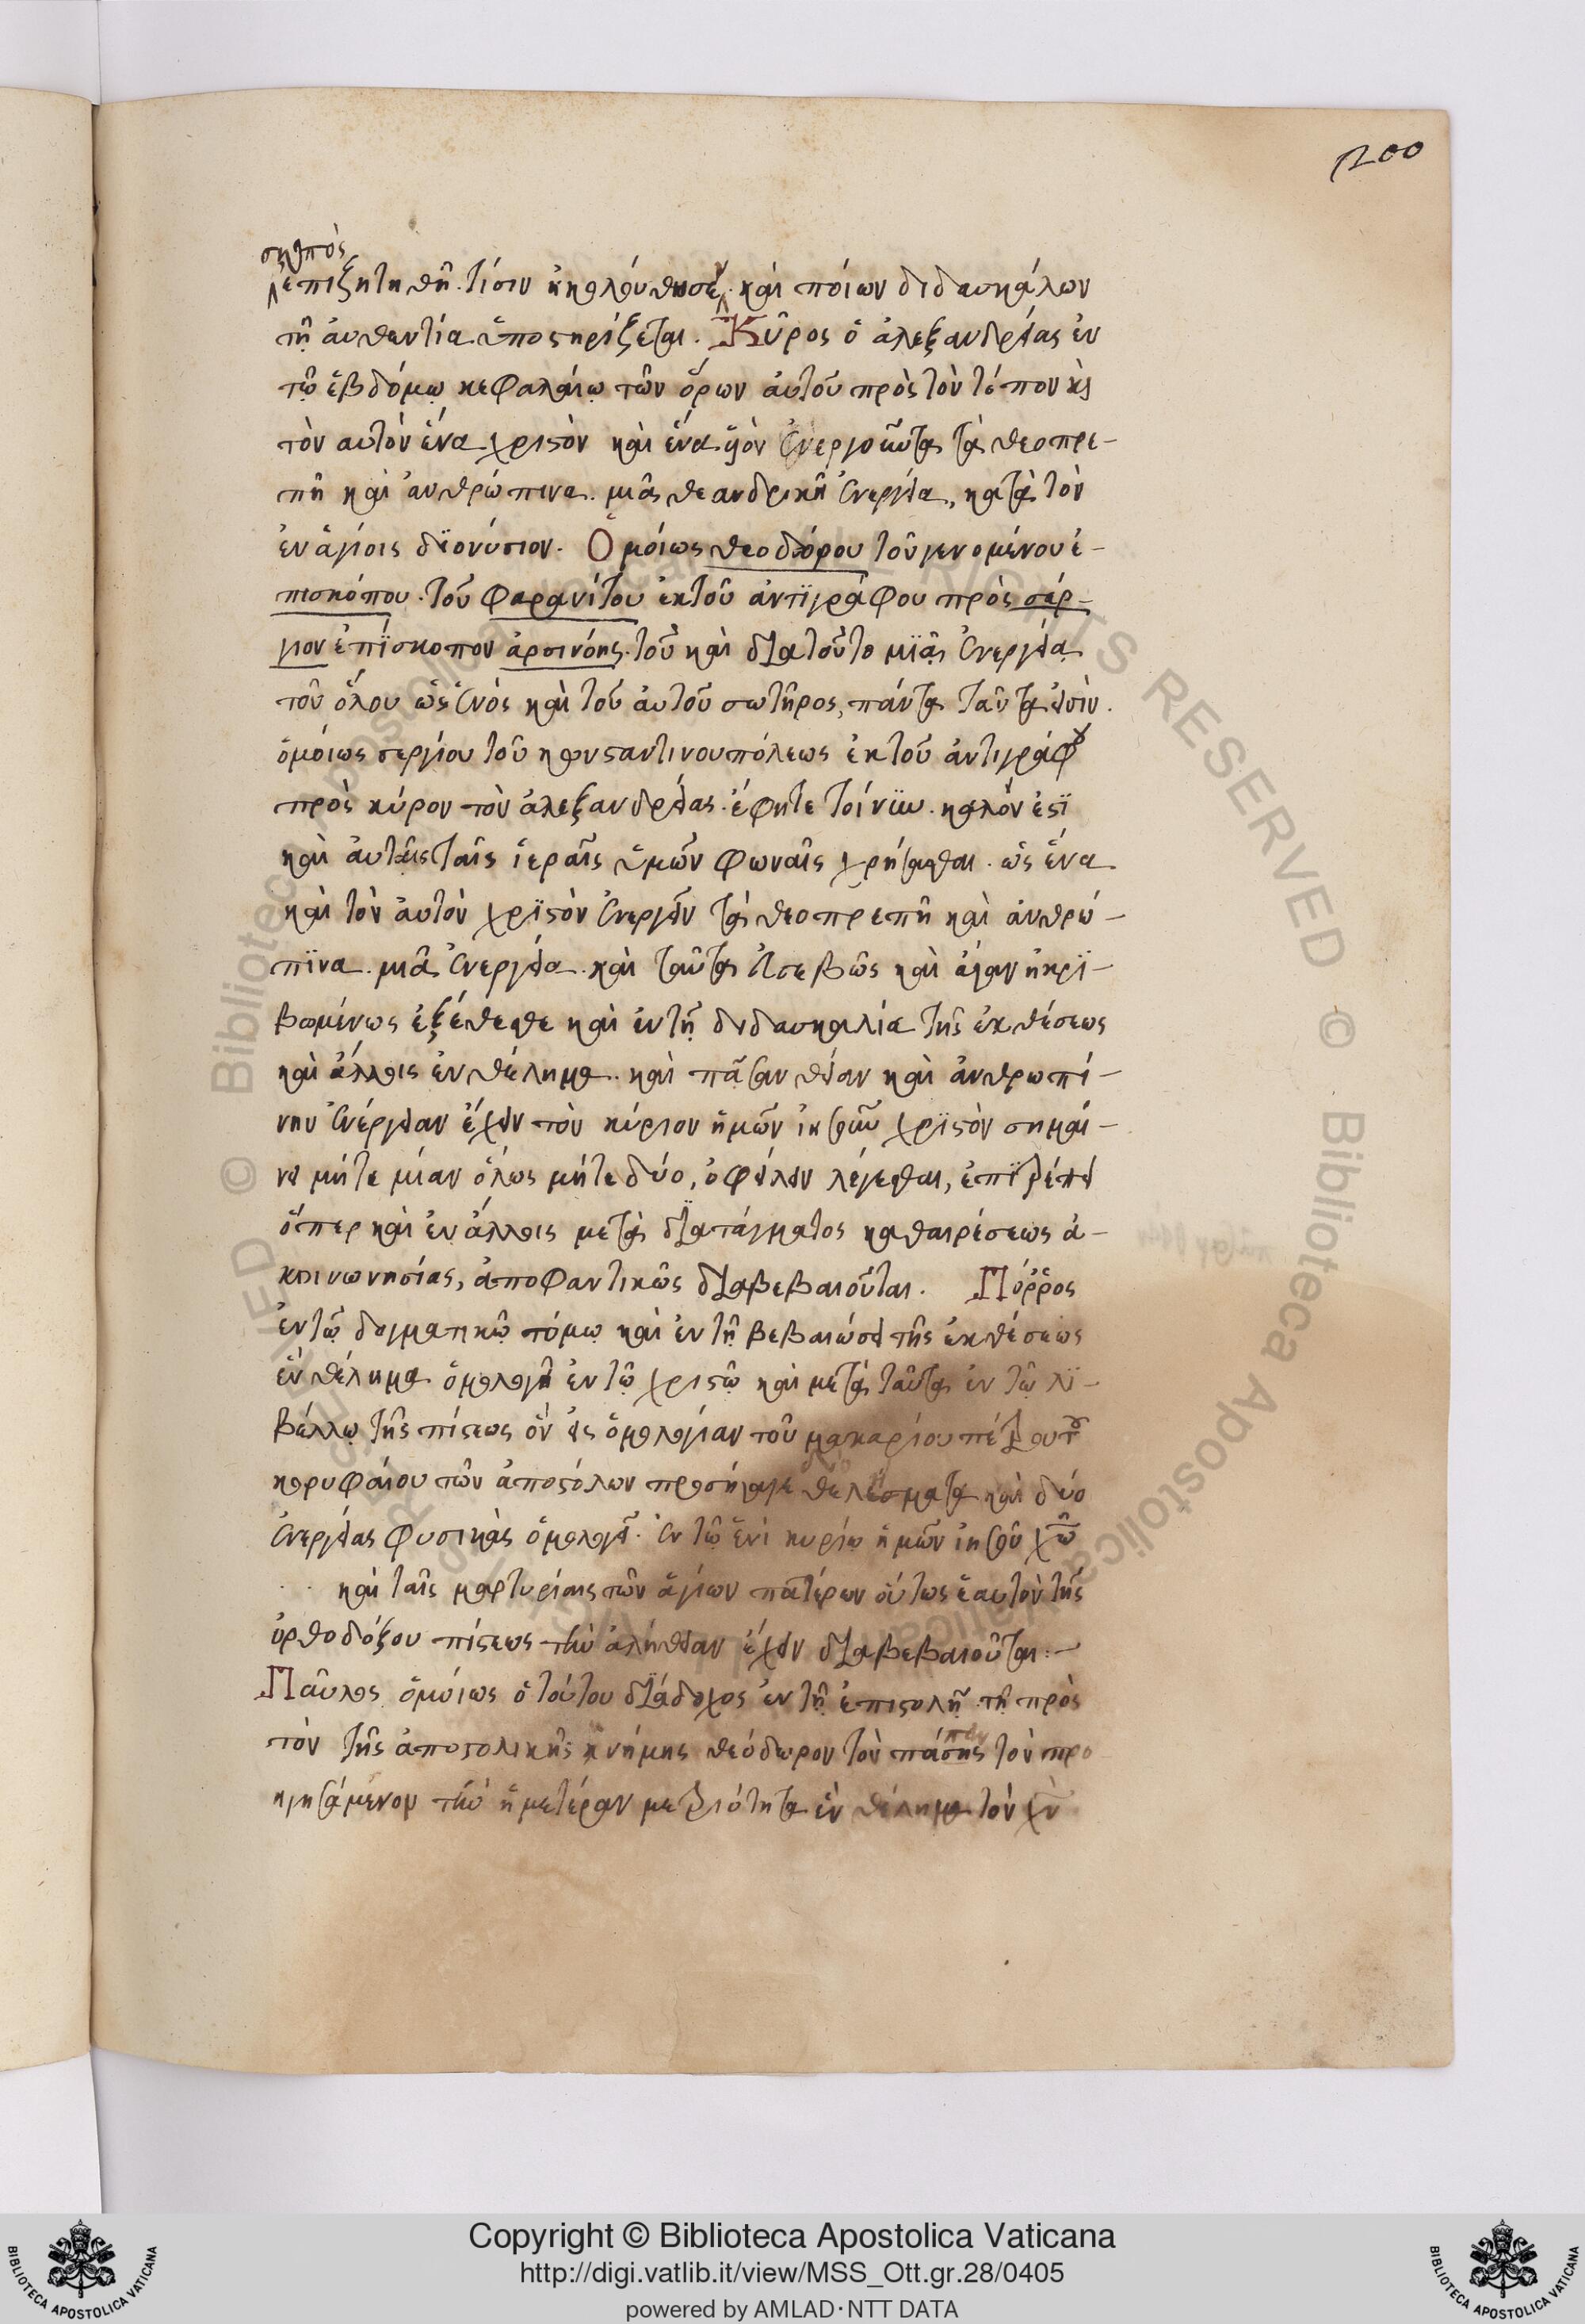 200
σκοπὸς
ἐπιζητηθῆ. τίσιν ἠκολούθησεν. καὶ ποίων διδασκάλων
τῆ ἀυθεντία ὑποστηρίζεται. Κῦρος ὁ ἀλεξανδρείας ἐν
τῷ ἑβδόμῳ κεφαλάιῳ τῶν ὅρων ἀυτοῦ πρὸς τὸν τόπον κὶ
τὸν αυτὸν ἕνα χριστὸν καὶ ἕνα ὑὸν ἐνεργοῦντα τὰ θεοπρε-
πῆ καὶ ἀνθρώπινα. μιᾶ θεανδρικῆ ἐνεργεία, κατὰ τὸν
ἐν ἁγίοις διονύσιον. Ὁμοίως θεοδώρου τοῦ γενομένου ἐ-
πισκόπου. τοῦ φαρανίτου ἐκ τοῦ ἀντιγράφου πρὸς σέρ-
γιον ἐπίσκοπον ἀρσινόης. τοῦ καὶ διατοῦτο μιᾶς ἐνεργείας
τοῦ ὅλου ὡς ἑνὸς καὶ τοῦ ἀυτοῦ σωτῆρος, πάντα ταῦτα εἰσὶν.
ὁμοίως σεργίου τοῦ κονσταντινουπόλεως ἐκ τοῦ ἀντιγράφου
πρὸς κύρον τὸν ἀλεξανδρείας. ἔφητε τοίνυν. καλόν ἐστϊ
καὶ ἀυταῖς ταῖς ἱεραῖς ὑμῶν φωναῖς χρήσασθαι. ὡς ἕνα
καὶ τὸν ἀυτὸν χρϊστὸν ἐνεργεῖν τὰ θεοπρεπῆ καὶ ἀνθρώ-
πϊνα. μιᾶ ἐνεργεία. καὶ ταῦτα ἐυσεβῶς καὶ ἄγαν ἠκρϊ-
βωμένως ἐξέθεσθε καὶ ἐν τῆ διδασκαλία τῆς ἐκθέσεως
καὶ ἄλλοις ἓν θέλημα. καὶ πᾶσαν θείαν καὶ ἀνθρωπί-
νην ἐνέργειαν ἔχειν τὸν κύριον ἡμῶν ἰησοῦν χρϊστὸν σημαί-
νει μήτε μίαν ὅλως μήτε δύο, ὀφείλειν λέγεσθαι, ἐπϊτρέπει
ὅπερ καὶ ἐν ἄλλοις μετὰ διατάγματος καθαιρέσεως ἀ-
κοινωνησίας, ἀποφαντικῶς διαβεβαιοῦται. Πύρρος
ἐν τῷ δογματικῷ τόμῳ καὶ ἐν τῆ βεβαιώσει τῆς ἐκθέσεως
ἓν θέλημα ὁμολογεῖ ἐν τῷ χριστῷ καὶ μετὰ ταῦτα ἐν τῷ λϊ-
βέλλῳ τῆς πίστεως ὃν εἰς ὁμολογίαν τοῦ μακαρίου πέτρου τοῦ
κορυφαίου τῶν ἀποστόλων προσήγαγε θελήματα καὶ δύο
ἐνεργείας φυσικὰς ὁμολογεῖ. ἐν τῷ ἑνὶ κυρίῳ ἡμῶν ἰησοῦ χῷ
καὶ ταῖς μαρτυρίαις τῶν ἁγίων πατέρων οὕτως ἑαυτὸν τῆς
ὀρθοδόξου πίστεως τὴν ἀλήθειαν ἔχειν διαβεβαιοῦται:-
Παῦλος ὁμοίως ὁ τούτου διάδοχος ἐν τῆ ἐπιστολῆ τῆ πρὸς
τὸν τῆς ἀποστολικῆς μνήμης θεόδωρον τὸν πάπαν τὸν προ-
ηγησάμενον τὴν ἡμετέραν μετριότητα ἓν θέλημα τὸν χν
Copyright © Biblioteca Apostolica Vaticana
http://digi.vatlib.it/view/MSS_Ott.gr.28/0405
powered by AMLAD·NTT DATA